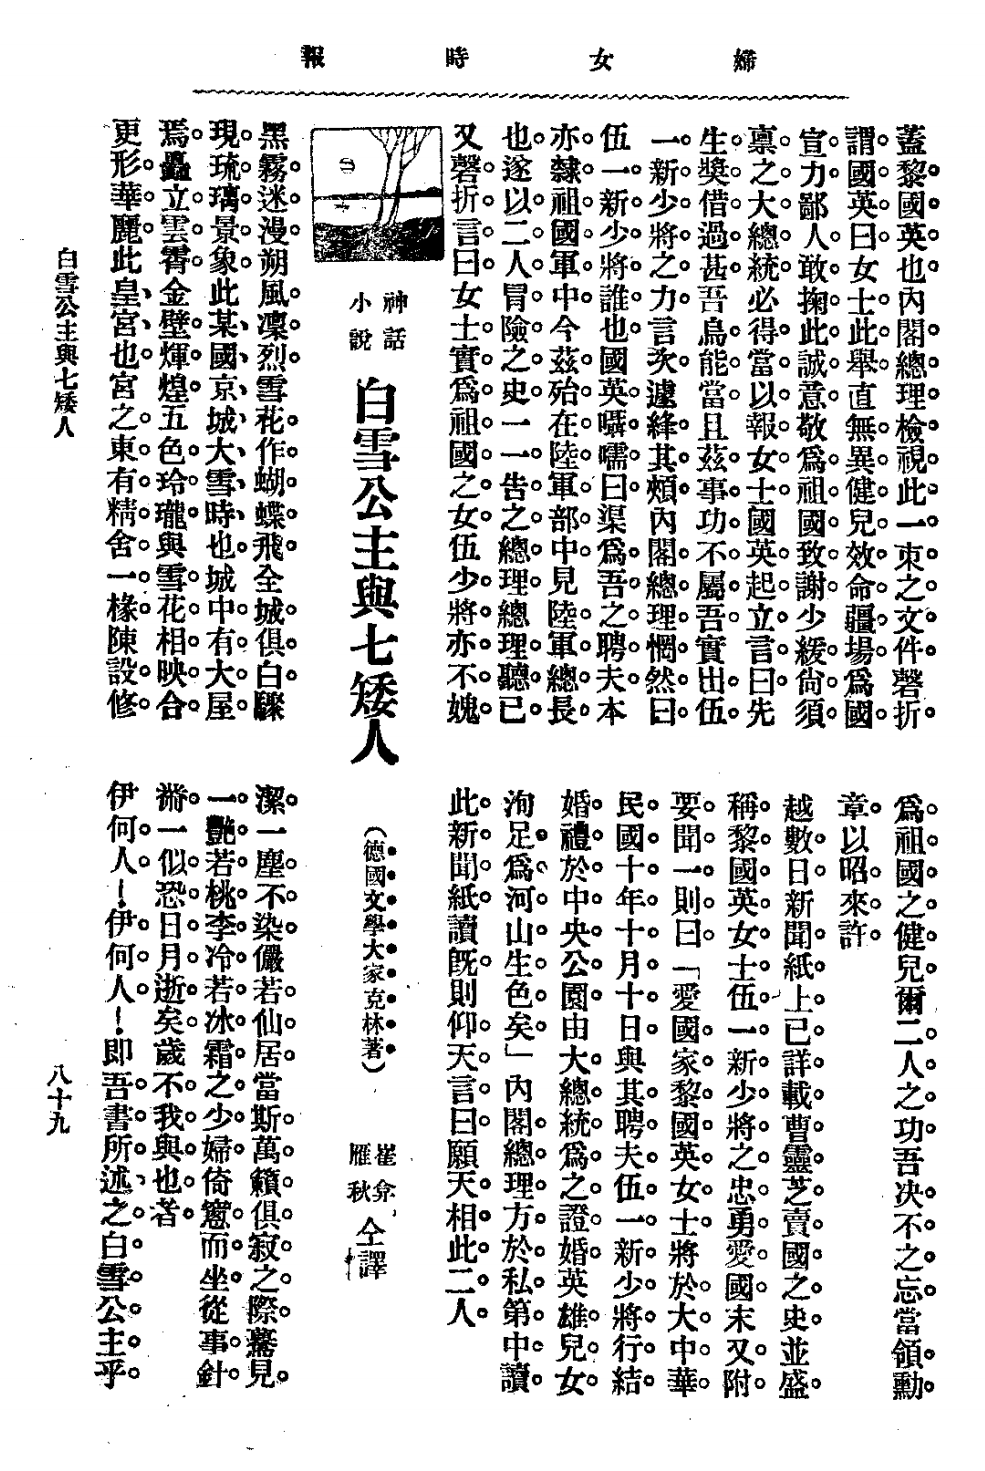 婦女時報
蓋黎國英也內閣總理檢視此一束之文件磬折
謂國英曰女士此舉直無異健兒效命疆場爲國
宣力鄙人敢掬此誠意敬爲祖國致謝少緩尙須
稟之大總統必得當以報女士國英起立言曰先
生獎借過甚吾烏能當且茲事功不屬吾實出伍
一新少將之力言次遽絳其頰內閣總理惘然曰
伍一新少將誰也國英囁嚅曰渠爲吾之聘夫本
亦隸祖國軍中今茲殆在陸軍部中見陸軍總長
也遂以二人冒險之史一一告之總理總理聽已
又磬折言曰女士實爲祖國之女伍少將亦不媿
爲祖國之健兒爾二人之功吾決不之忘當領勳
章以昭來許
越數日新聞紙上已詳載曹靈芝賣國之史並盛
稱黎國英女士伍一新少將之忠勇愛國末又附
要聞一則曰「愛國家黎國英女士將於大中華
民國十年十月十日與其聘夫伍一新少將行結
婚禮於中央公園由大總統爲之證婚英雄兒女
洵足爲河山生色矣」內閣總理方於私第中讀
此新聞紙讀旣則仰天言曰願天相此二人
神話小說
白雪公主與七矮人
（德國文學大家克林著）
崔弇
雁秋
仝譯
黑霧迷漫朔風凜烈雪花作蝴蝶飛全城俱白驟
現琉璃景象此某國京城大雪時也城中有大屋
焉矗立雲霄金壁輝煌五色玲瓏與雪花相映合
更形華麗此皇宮也宮之東有精舍一椽陳設修
潔一塵不染儼若仙居當斯萬籟俱寂之際驀見
一艷若桃李冷若冰霜之少婦倚窻而坐從事針
黹一似恐日月逝矣歲不我與也者
伊何人！伊何人！卽吾書所述之白雪公主乎
白雪公主與七矮人
八十九